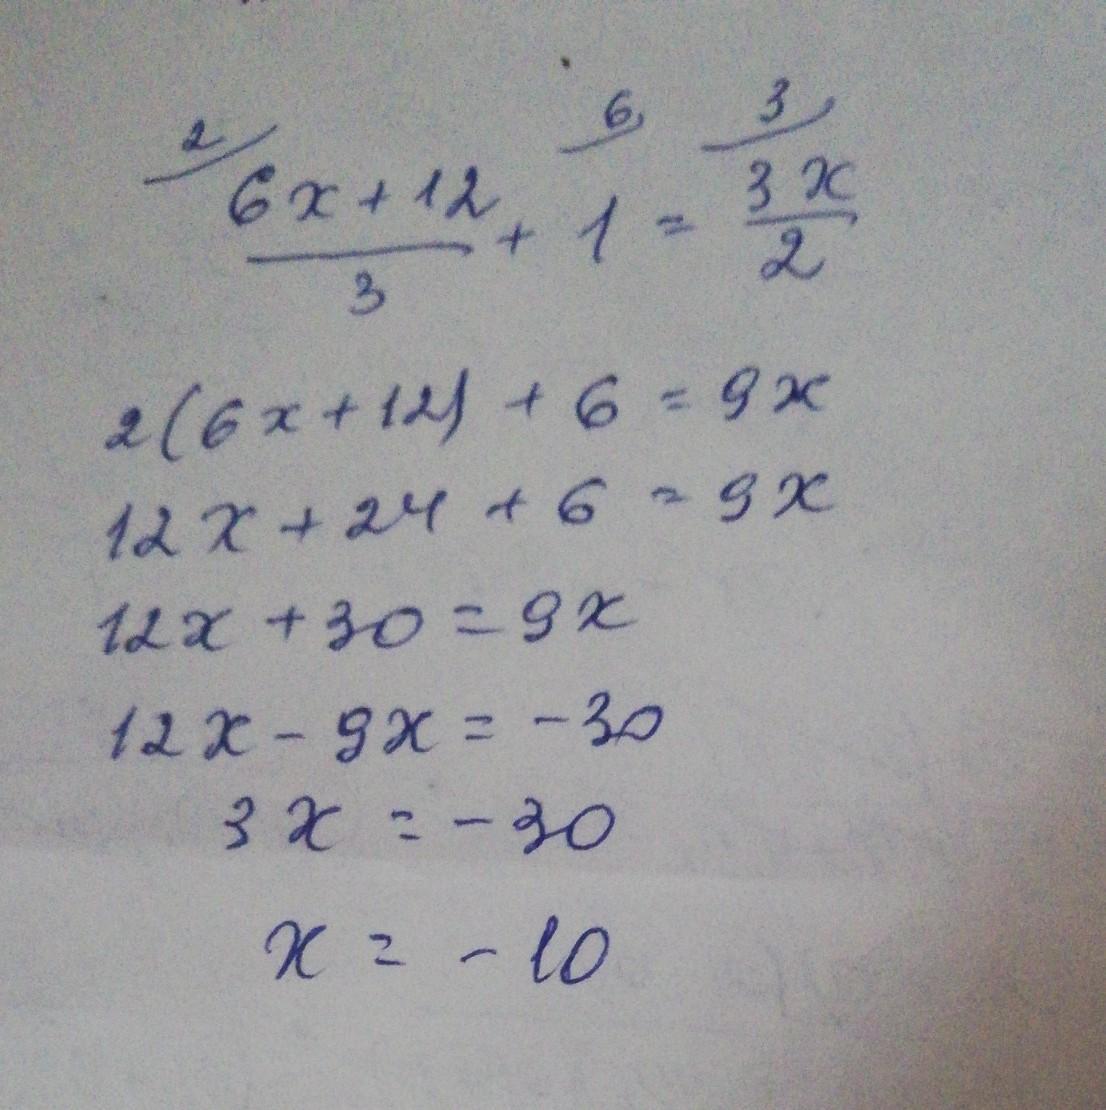 2 6 3
6x+12/3 + 1 = 3x/2
2(6x+12) + 6 = 9x
12x+24 + 6 = 9x
12x +30 = 9x
12x - 9x = -30
3x = -30
x = -10